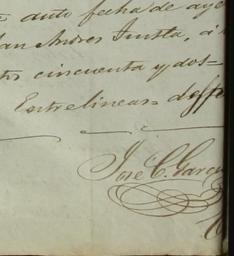 auto fecha de ayer
San Andres Tuxtla, á
cincuenta y dos=
Entrelineas
José C. Garcia